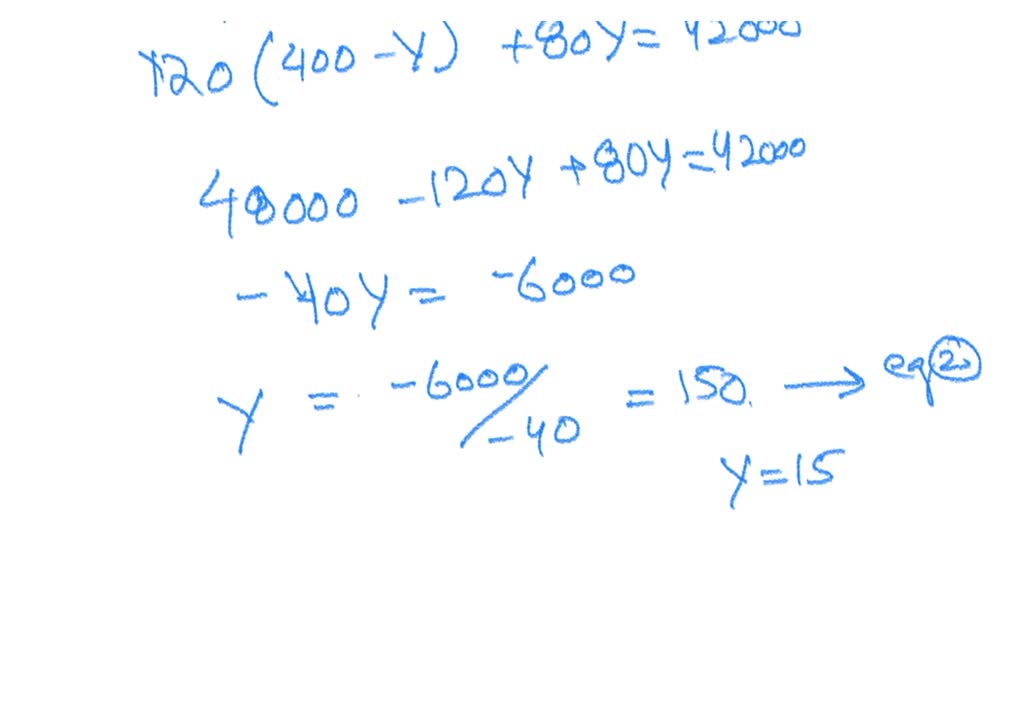 120 (400 - Y) + 80Y = 42000
48000 - 120Y + 80Y = 42000
- 40Y = -6000
Y = -6000/-40 = 150. → eq ②
Y = 15